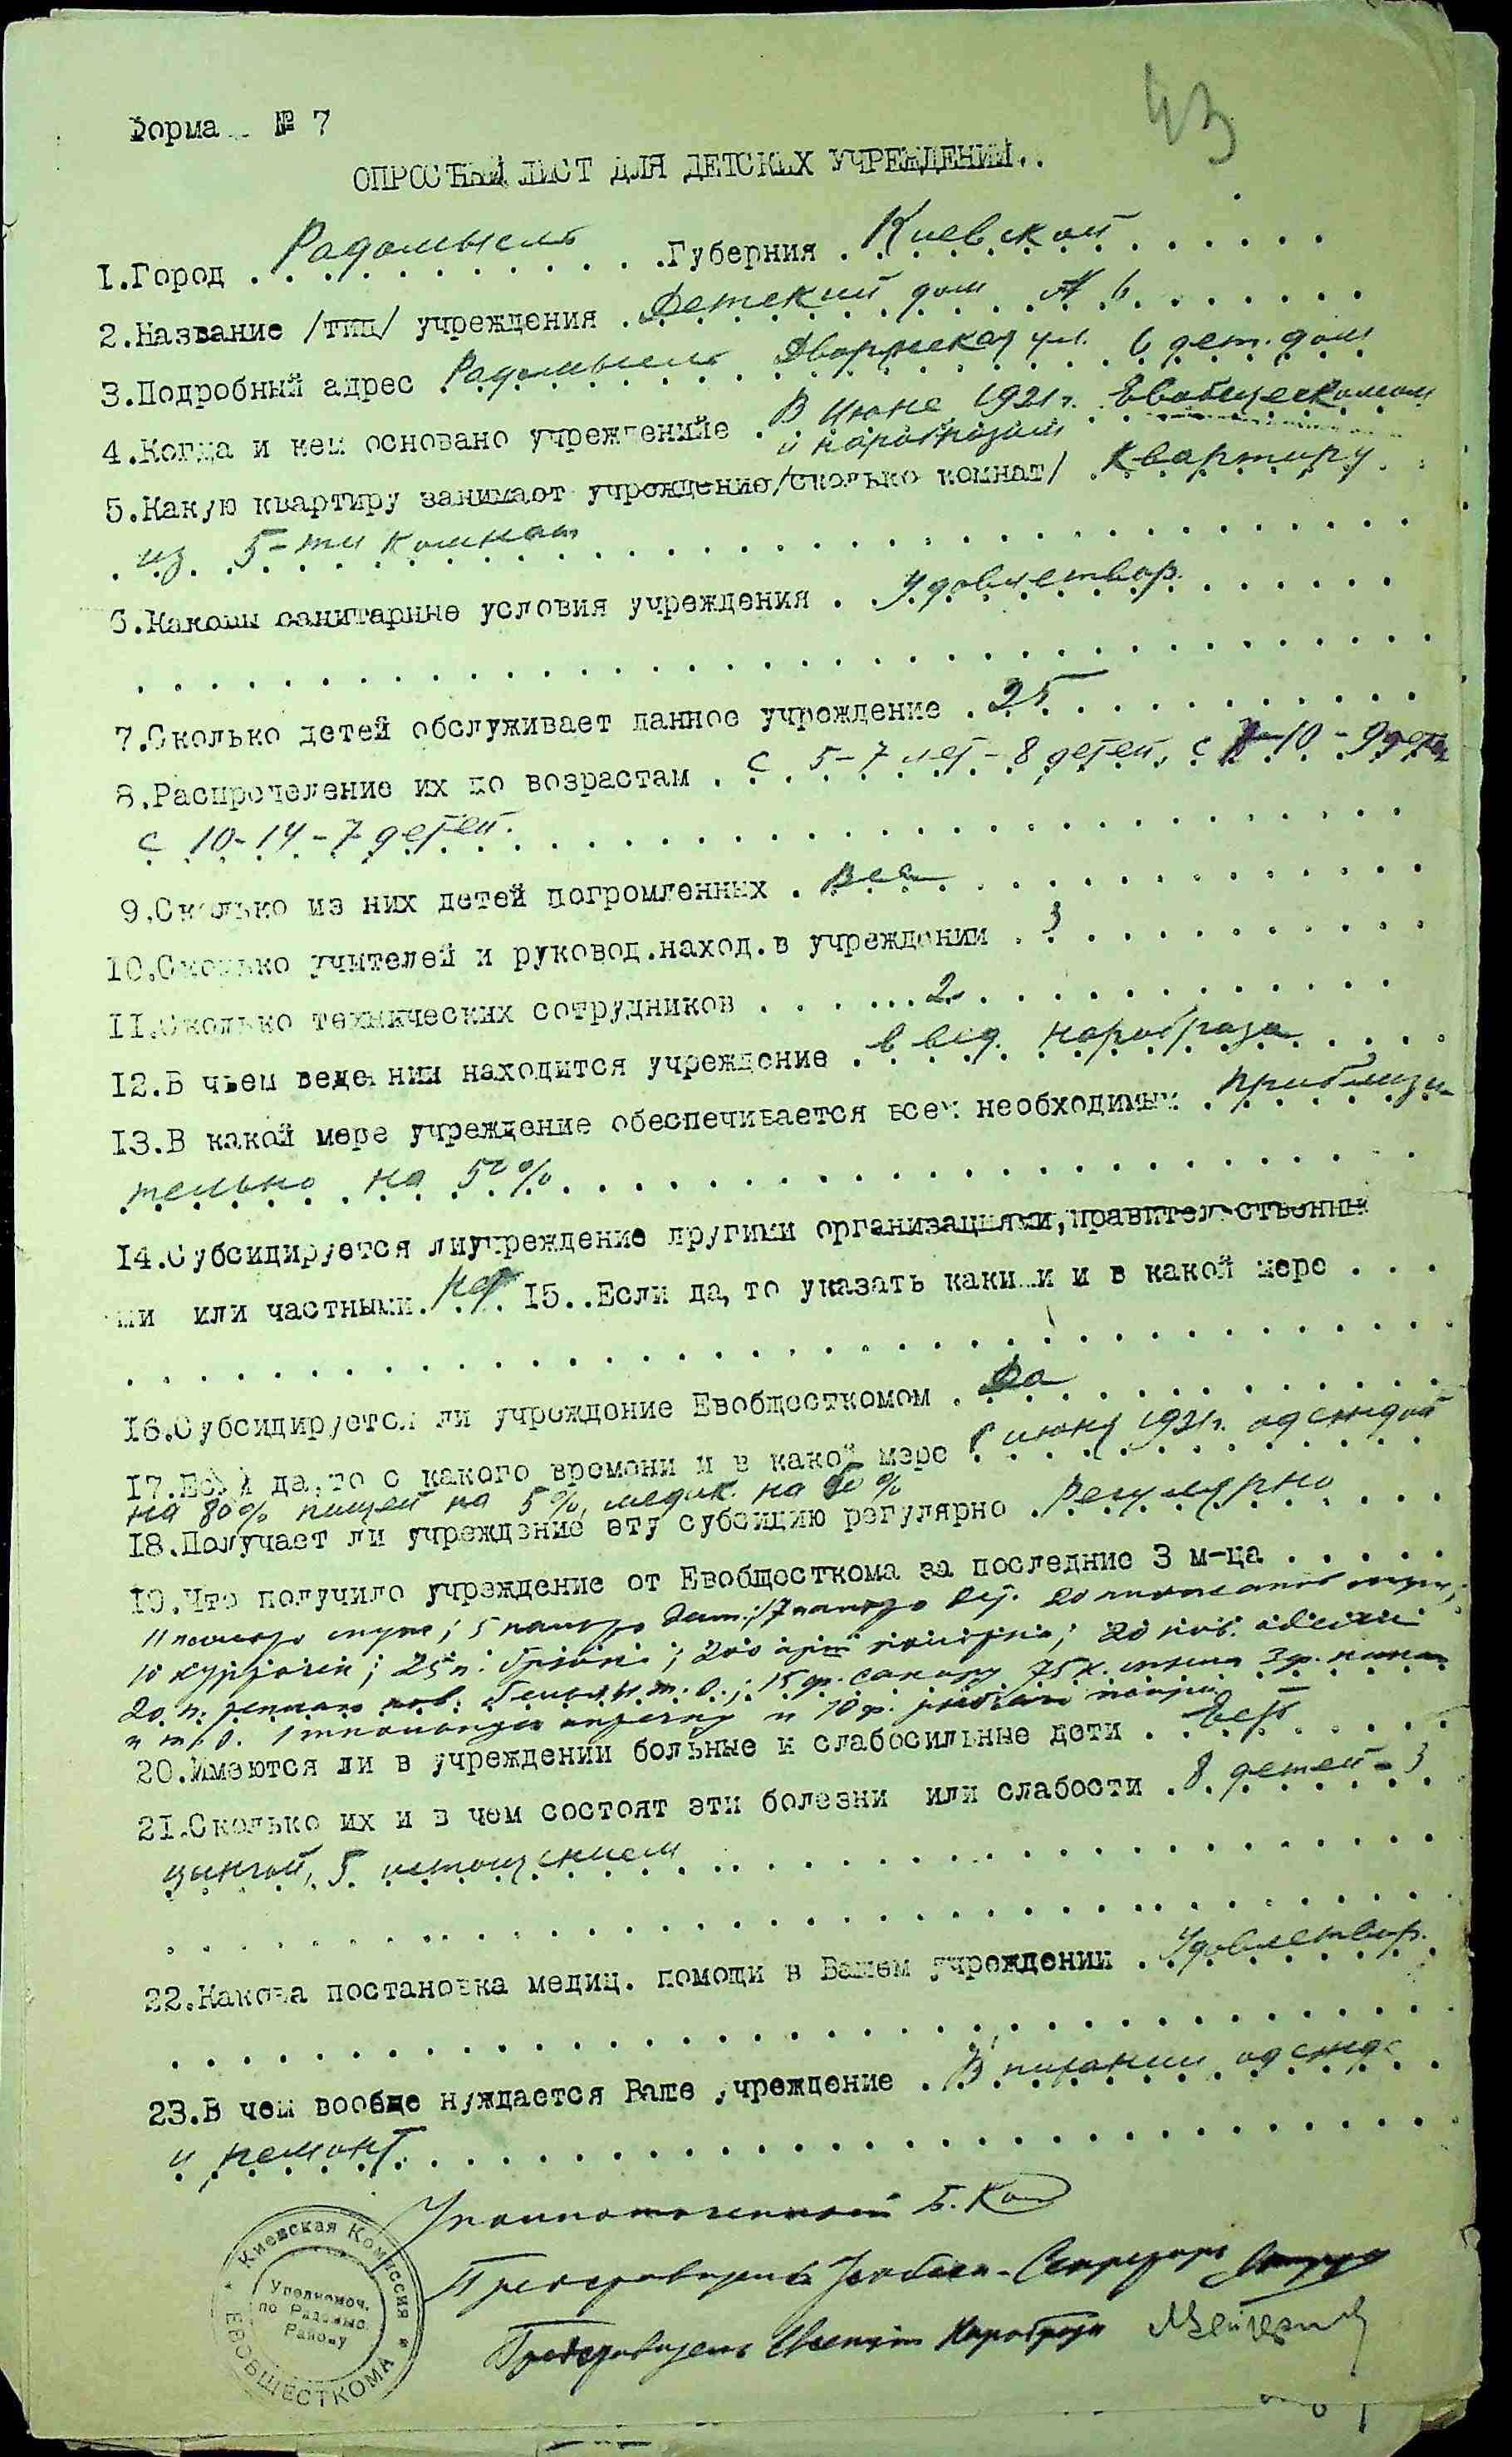 43
Форма № 7
ОПРОСНЫЙ ЛИСТ ДЛЯ ДЕТСКИХ УЧРЕЖДЕНИЙ..
1.Город . Радомысль . .Губерния . Киевской
2.Название /тип/ учреждения . Детский дом № 6
3.Подробный адрес . Радомысль Дворянская ул. 6 дет. дом
4.Когда и кем основано учреждениие . В июне 1921 г. Евобщескомом
и наробразом
5.Какую квартиру занимает учреждение/сколько комнат/ Квартиру
из 5-ти комнат
6.Каковы санитарные условия учреждения . Удовлетвор.
7.Сколько детей обслуживает данное учреждение . 25
8.Распределение их по возрастам . с 5-7 лет - 8 детей, с 7-10 - 9 детей
с 10-14 - 7 детей.
9.Сколько из них детей погромленных . Все
10.Сколько учителей и руковод.наход.в учреждении . 3
11.Сколько технических сотрудников . 2
12.В чьем ведении находится учреждение . в вед. наробраза
13.В какой мере учреждение обеспечивается всем необходимым . Приблизи-
тельно на 50%
14.Субсидируется лиучреждение другими организациями,правительственны
ми или частными. Нет. 15..Если да,то указать какими и в какой мере . . .
16.Субсидируется ли учреждение Евобщесткомом . Да
17.Если да,то с какого времени и в какой мере с июня 1921 г. одеждой
на 80% пищей на 5%, медик. на %
18.Получает ли учреждение эту субсидию регулярно . Регулярно
19.Что получило учреждение от Евобщесткома за последние 3 м-ца . . . . .
11 5 20
10 ; 25 п. ; 200 ; 20
20 п. и т. д.; 15 ф. сахару 75 к. 3 ф. какао
и т. д. 1 и 10 ф.
20.Имеются ли в учреждении больные и слабосильные дети . Есть
21.Сколько их и в чем состоят эти болезни или слабости . 8 детей - 3
цынгой, 5 истощением
22.Какова постановка медиц. помощи в Вашем учреждении . Удовлетвор.
23.В чем вообще нуждается Ваше учреждение . В питании, одежде
и ремонт.
Уполномоченный Б.
Председатель Секретарь
Наробраза
Киевская Комиссия
Уполномоч.
по Радомыс.
Району
ЕВОБЩЕСТКОМА